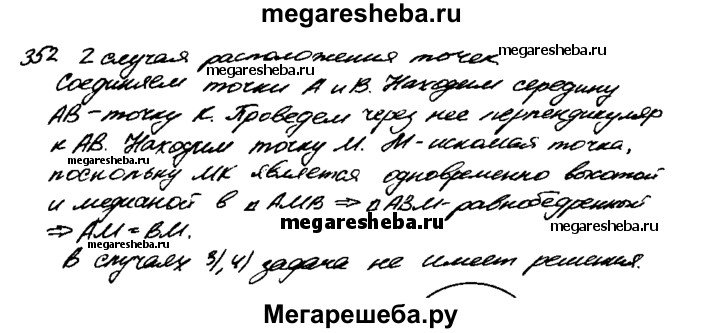 megaresheba.ru
352 2 случая расположения точек.
megaresheba.ru megaresheba.ru
Соединяем точки А и В. Находим середину
АВ – точку К. Проведем через нее перпендикуляр
к АВ. Находим точку М. М – искомая точка,
megaresheba.ru megaresheba.ru
поскольку МК является одновременно высотой
и медианой в △ АМВ ⇒ △ АВМ – равнобедренный
megaresheba.ru
⇒ АМ = ВМ.
megaresheba.ru megaresheba.ru
В случаях 3), 4) задача не имеет решения.
Мегарешеба.ру